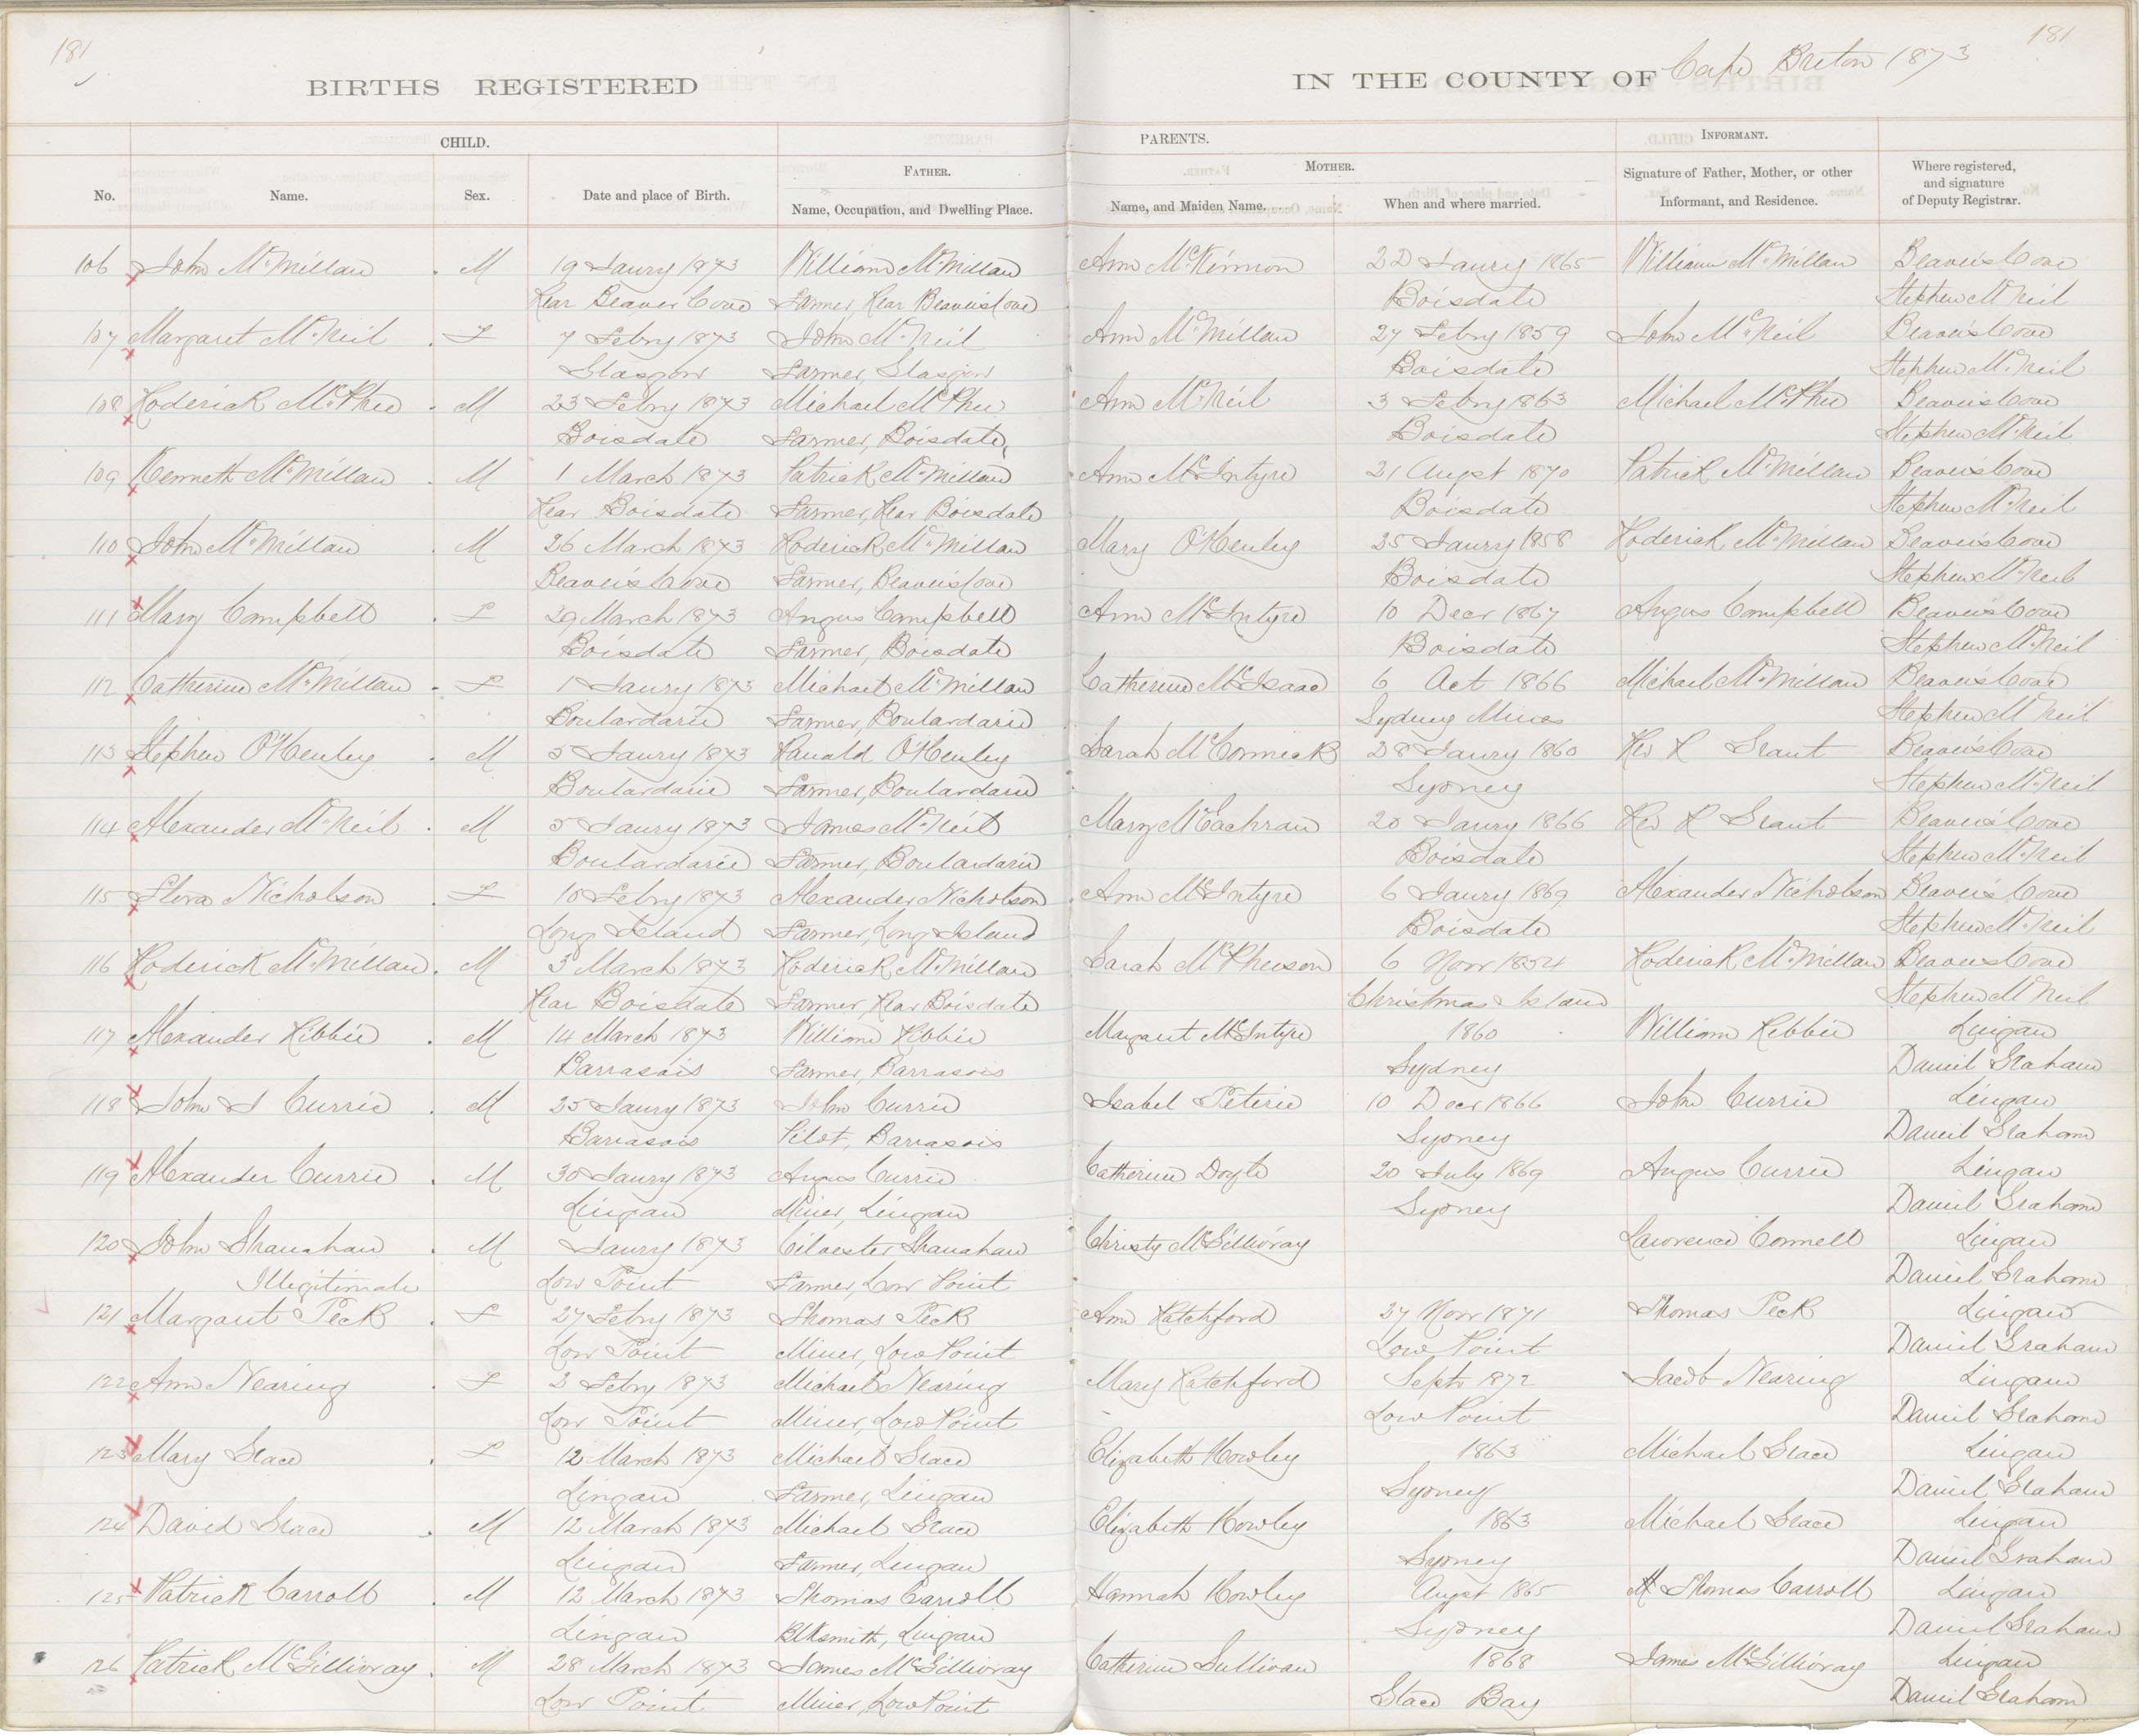 181
181
BIRTHS REGISTERED IN THE COUNTY OF Cape Breton 1873
CHILD. PARENTS. INFORMANT.
FATHER. MOTHER.
No. Name. Sex. Date and place of Birth. Name, Occupation, and Dwelling Place. Name, and Maiden Name. When and where married. Signature of Father, Mother, or other Informant, and Residence. Where registered, and signature of Deputy Registrar.
106 John McMillan M 19 Janry 1873 William McMillan Ann McKinnon 22 Janry 1865 William McMillan Beaver's Cove
Rear Beaver Cove Farmer, Rear Beaver's Cove Boisdale Stephen McNeil
107 Margaret McNeil F 7 Febry 1873 John McNeil Ann McMillan 27 Febry 1859 John McNeil Beaver's Cove
Glasgow Farmer, Glasgow Boisdale Stephen McNeil
108 Roderick McPhee M 23 Febry 1873 Michael McPhee Ann McNeil 3 Febry 1863 Michael McPhee Beaver's Cove
Boisdale Farmer, Boisdale, Boisdale Stephen McNeil
109 Kenneth McMillan M 1 March 1873 Patrick McMillan Ann McIntyre 21 Augst 1870 Patrick McMillan Beaver's Cove
Rear Boisdale Farmer, Rear Boisdale Boisdale Stephen McNeil
110 John McMillan M 26 March 1873 Roderick McMillan Mary O'Henley 25 Janry 1858 Roderick McMillan Beaver's Cove
Beaver's Cove Farmer, Beaver's Cove Boisdale Stephen McNeil
111 Mary Campbell F 29 March 1873 Angus Campbell Ann McIntyre 10 Decr 1867 Angus Campbell Beaver's Cove
Boisdale Farmer, Boisdale Boisdale Stephen McNeil
112 Catherine McMillan F 1 Janry 1873 Michael McMillan Catherine McIsaac 6 Oct 1866 Michael McMillan Beaver's Cove
Boulardarie Farmer, Boulardarie Sydney Mines Stephen McNeil
113 Stephen O'Henley M 5 Janry 1873 Ranald O'Henley Sarah McCormick 28 Janry 1860 Rev R Grant Beaver's Cove
Boulardarie Farmer, Boulardarie Sydney Stephen McNeil
114 Alexander McNeil M 5 Janry 1873 James McNeil Mary McEachran 20 Janry 1866 Rev R Grant Beaver's Cove
Boulardarie Farmer, Boulardarie Boisdale Stephen McNeil
115 Flora Nicholson F 10 Febry 1873 Alexander Nicholson Ann McIntyre 6 Janry 1869 Alexander Nicholson Beaver's Cove
Long Island Farmer, Long Island Boisdale Stephen McNeil
116 Roderick McMillan M 3 March 1873 Roderick McMillan Sarah McPherson 6 Novr 1854 Roderick McMillan Beaver's Cove
Rear Boisdale Farmer, Rear Boisdale Christmas Island Stephen McNeil
117 Alexander Kibbie M 14 March 1873 William Kibbie Margaret McIntyre 1860 William Kibbie Lingan
Barrasois Farmer, Barrasois Sydney Daniel Graham
118 John J Currie M 25 Janry 1873 John Currie Isabel Peterie 10 Decr 1866 John Currie Lingan
Barrasois Pilot, Barrasois Sydney Daniel Graham
119 Alexander Currie M 30 Janry 1873 Angus Currie Catherine Doyle 20 July 1869 Angus Currie Lingan
Lingan Miner, Lingan Sydney Daniel Graham
120 John Shanahan M Janry 1873 Cilvester Shanahan Christy McGillivray Lawrence Connell Lingan
Illegitimate Low Point Farmer, Low Point Daniel Graham
121 Margaret Peck F 27 Febry 1873 Thomas Peck Ann Ratchford 27 Novr 1871 Thomas Peck Lingan
Low Point Miner, Low Point Low Point Daniel Graham
122 Ann Nearing F 2 Febry 1873 Michael Nearing Mary Ratchford Septr 1872 Jacob Nearing Lingan
Low Point Miner, Low Point Low Point Daniel Graham
123 Mary Grace F 12 March 1873 Michael Grace Elizabeth Howley 1863 Michael Grace Lingan
Lingan Farmer, Lingan Sydney Daniel Graham
124 David Grace M 12 March 1873 Michael Grace Elizabeth Howley 1863 Michael Grace Lingan
Lingan Farmer, Lingan Sydney Daniel Graham
125 Patrick Carroll M 12 March 1873 Thomas Carroll Hannah Howley Augst 1865 Thomas Carroll Lingan
Lingan Blksmith, Lingan Sydney Daniel Graham
126 Patrick McGillivray M 28 March 1873 James McGillivray Catherine Sullivan 1868 James McGillivray Lingan
Low Point Miner, Low Point Glace Bay Daniel Graham